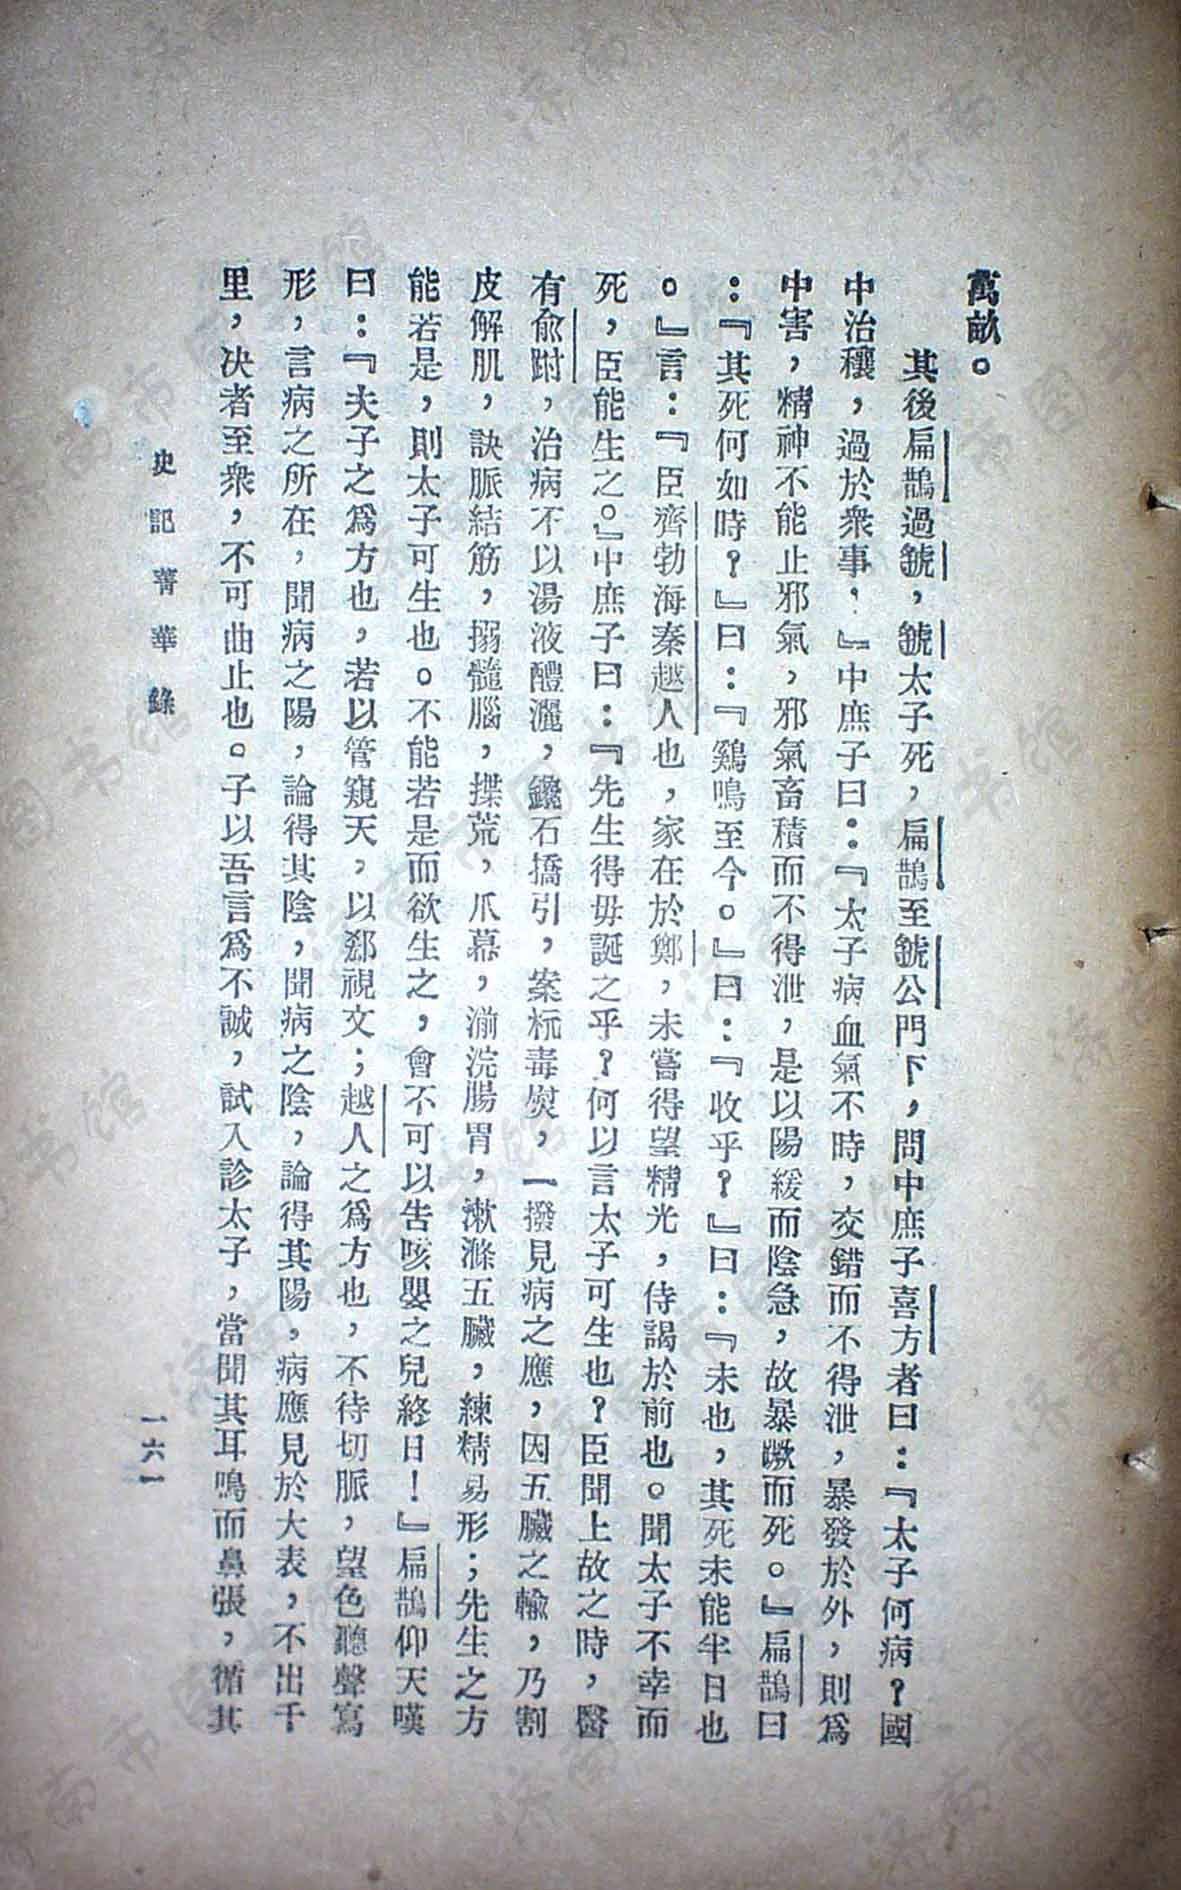 萬畝。
其後扁鵲過虢，虢太子死，扁鵲至虢公門下，問中庶子喜方者曰：『太子何病？國
中治穰，過於衆事，』中庶子曰：『太子病血氣不時，交錯而不得泄，暴發於外，則爲
中害，精神不能止邪氣，邪氣畜積而不得泄，是以陽緩而陰急，故暴蹶而死。』扁鵲曰
：『其死何如時？』曰：『鷄鳴至今。』曰：『收乎？』曰：『未也，其死未能半日也
。』言：『臣齊勃海秦越人也，家在於鄭，未嘗得望精光，侍謁於前也。聞太子不幸而
死，臣能生之。』中庶子曰：『先生得毋誕之乎？何以言太子可生也？臣聞上故之時，醫
有俞跗，治病不以湯液醴灑，鑱石撟引，案杬毒熨，一撥見病之應，因五臟之輸，乃割
皮解肌，訣脈結筋，搦髓腦，揲荒，爪幕，湔浣腸胃，漱滌五臟，練精易形；先生之方
能若是，則太子可生也。不能若是而欲生之，會不可以告咳嬰之兒終日！』扁鵲仰天嘆
曰：『夫子之爲方也，若以管窺天，以郄視文；越人之爲方也，不待切脈，望色聽聲寫
形，言病之所在，聞病之陽，論得其陰，聞病之陰，論得其陽，病應見於大表，不出千
里，决者至衆，不可曲止也。子以吾言爲不誠，試入診太子，當聞其耳鳴而鼻張，循其
史記菁華錄
一六一
济南市图书馆